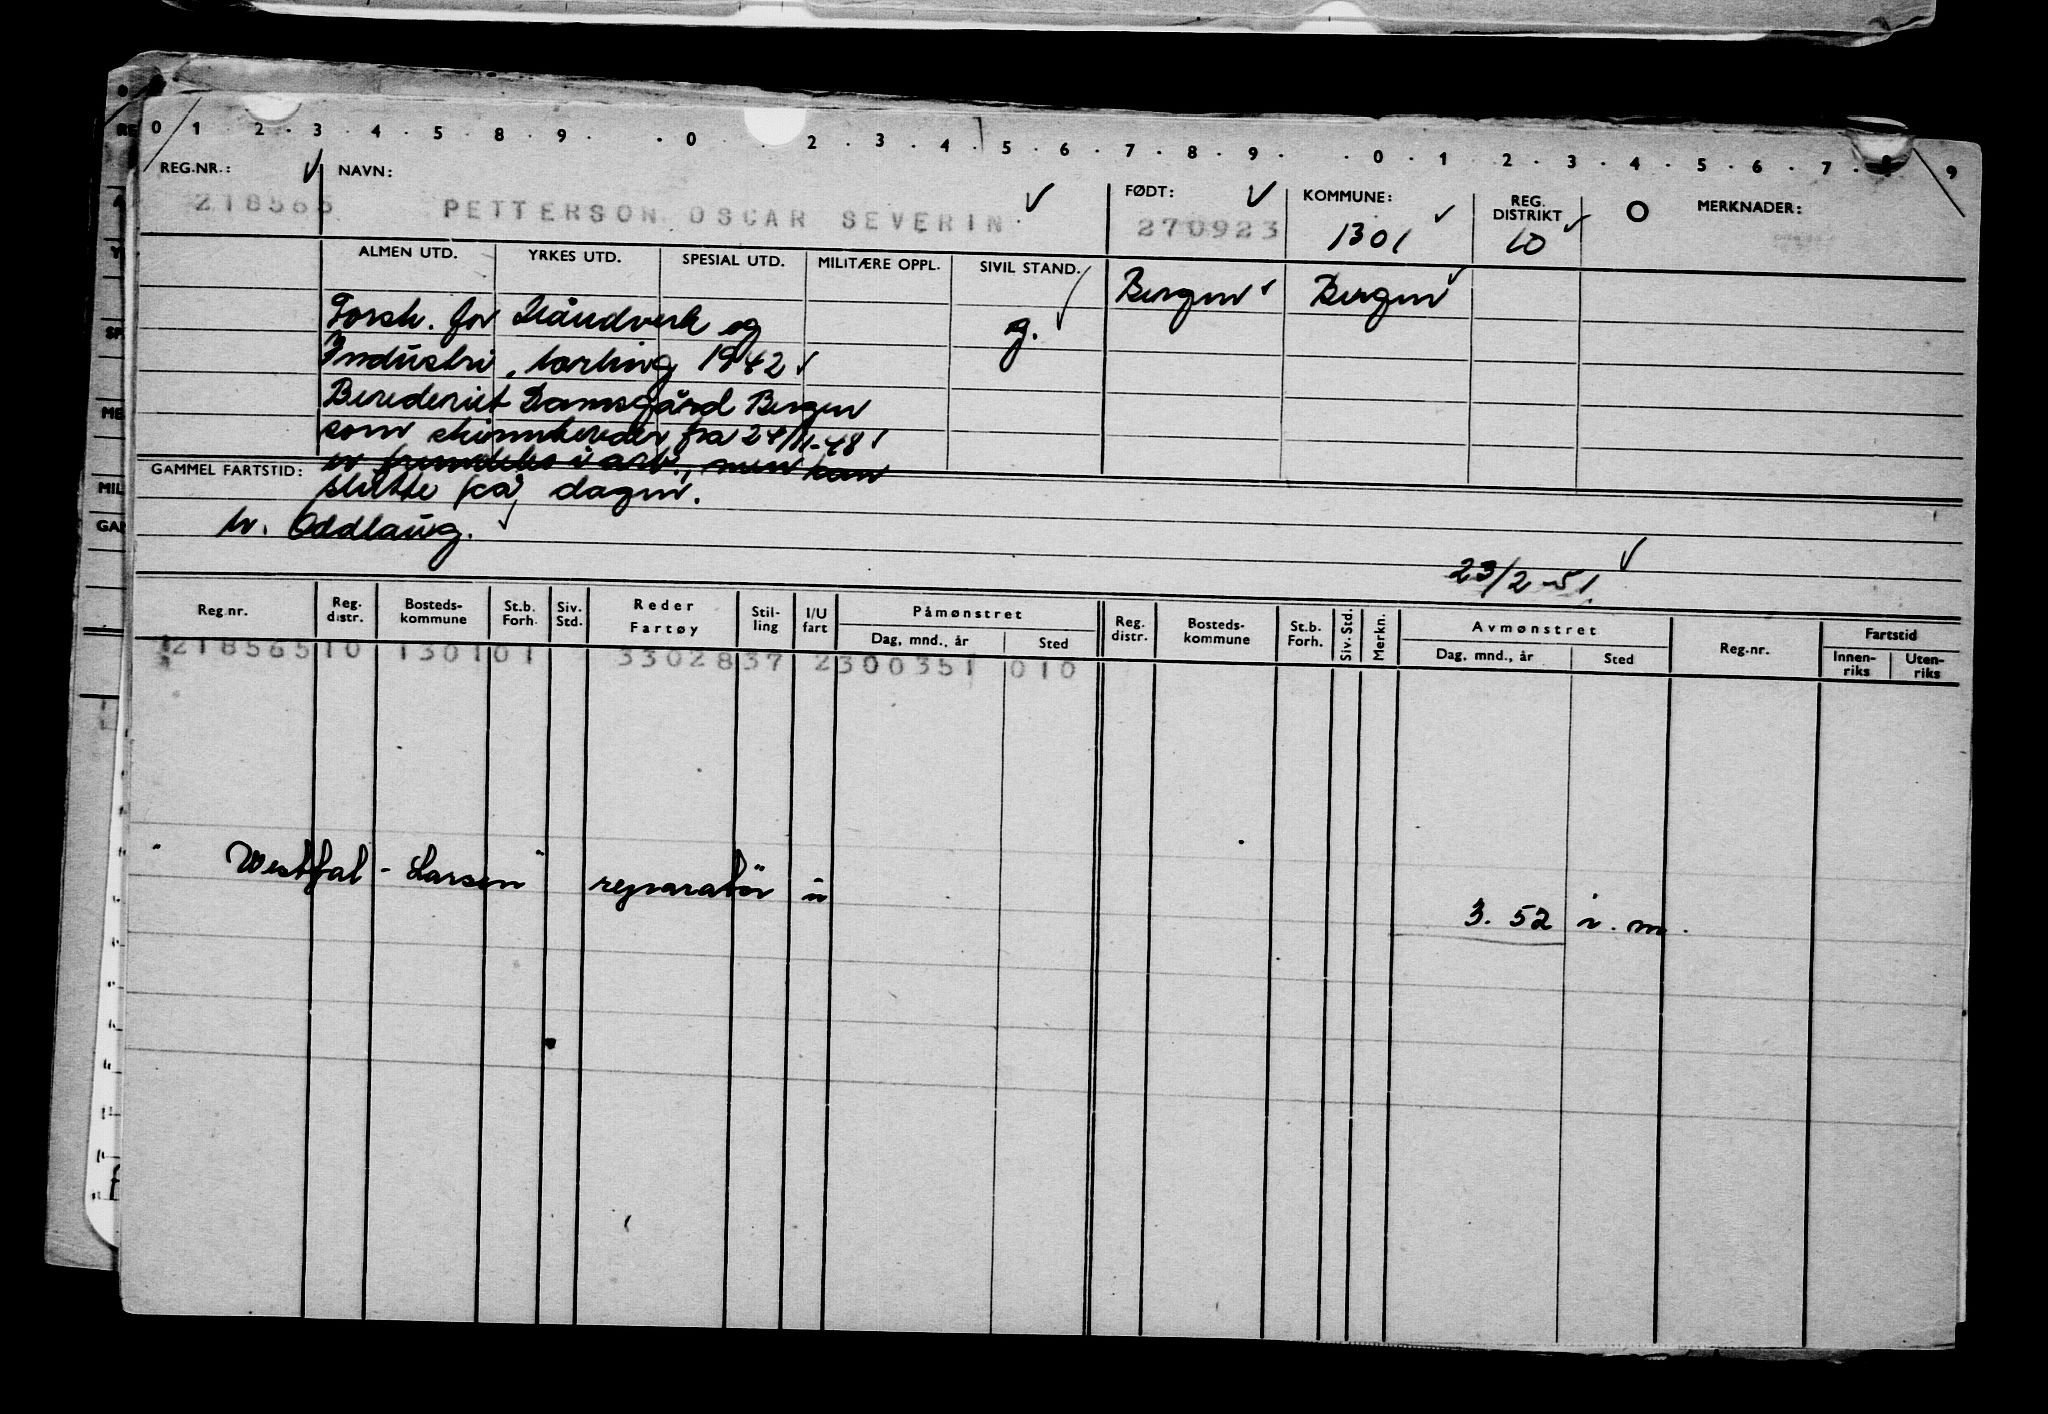 0 1 . 2 . 3 . 4 . 5 . 8 . 9 . . 0 . 2 . 3 . 4 . 5 . 6 . 7 . 8 . 9 . . 0 . 1 . 2 . 3 . 4 . 5 . 6 . 7 . 8 . 9
REG.NR.: NAVN: FØDT: KOMMUNE: REG. DISTRIKT O MERKNADER:
218565 PETTERSON OSCAR SEVERIN 270923 1301 10
ALMEN UTD. YRKES UTD. SPESIAL UTD. MILITÆRE OPPL. SIVIL STAND.
Bergen Bergen
Forsk. for Håndverk og g.
Industri, lærling 1942
Berederiet Damsgård Bergen
som skinnbereder fra 24/11-48
er fremdeles i arb., men kan
GAMMEL FARTSTID: slutte på dagen.
h. Oddlaug.
23/2-51.
Reg.nr. Reg. distr. Bosteds- kommune St.b. Forh. Siv. Std. Reder Fartøy Stil- ling I/U fart Påmønstret Reg. distr. Bosteds- kommune St.b. Forh. Siv. Std. Merkn. Avmønstret Reg.nr. Fartstid
Dag, mnd., år Sted Dag, mnd., år Sted Innen- riks Uten- riks
218565 10 1301 01 33028 37 2 300351 010
Westfal-Larsen reparatör u
3. 52 i. m.